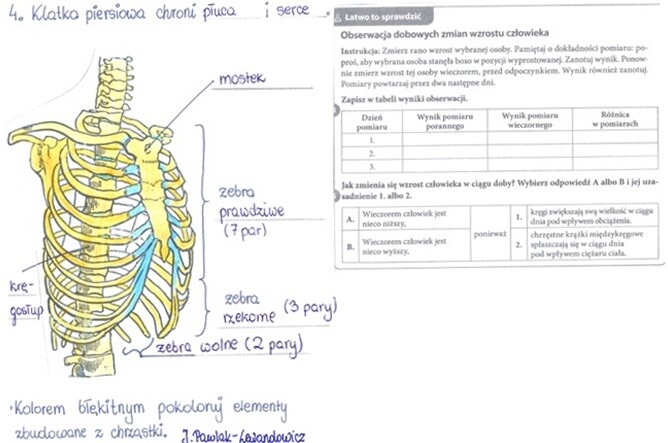 4. Klatka piersiowa chroni płuca i serce.
mostek
żebra
prawdziwe
(7 par)
krę-
gosłup
żebra
rzekome (3 pary)
żebra wolne (2 pary)
Kolorem błękitnym pokoloruj elementy
zbudowane z chrząstki. J. Pawlak-Lewandowicz
Łatwo to sprawdzić
Obserwacja dobowych zmian wzrostu człowieka
Instrukcja: Zmierz rano wzrost wybranej osoby. Pamiętaj o dokładności pomiaru: po-
proś, aby wybrana osoba stanęła boso w pozycji wyprostowanej. Zanotuj wynik. Ponow-
nie zmierz wzrost tej osoby wieczorem, przed odpoczynkiem. Wynik również zanotuj.
Pomiary powtarzaj przez dwa następne dni.
Zapisz w tabeli wyniki obserwacji.
Dzień pomiaru Wynik pomiaru porannego Wynik pomiaru wieczornego Różnica w pomiarach
1.
2.
3.
Jak zmienia się wzrost człowieka w ciągu doby? Wybierz odpowiedź A albo B i jej uza-
sadnienie 1. albo 2.
A. Wieczorem człowiek jest
nieco niższy,
B. Wieczorem człowiek jest
nieco wyższy,
ponieważ
1. kręgi zwiększają swą wielkość w ciągu
dnia pod wpływem obciążenia.
2. chrzęstne krążki międzykręgowe
spłaszczają się w ciągu dnia
pod wpływem ciężaru ciała.